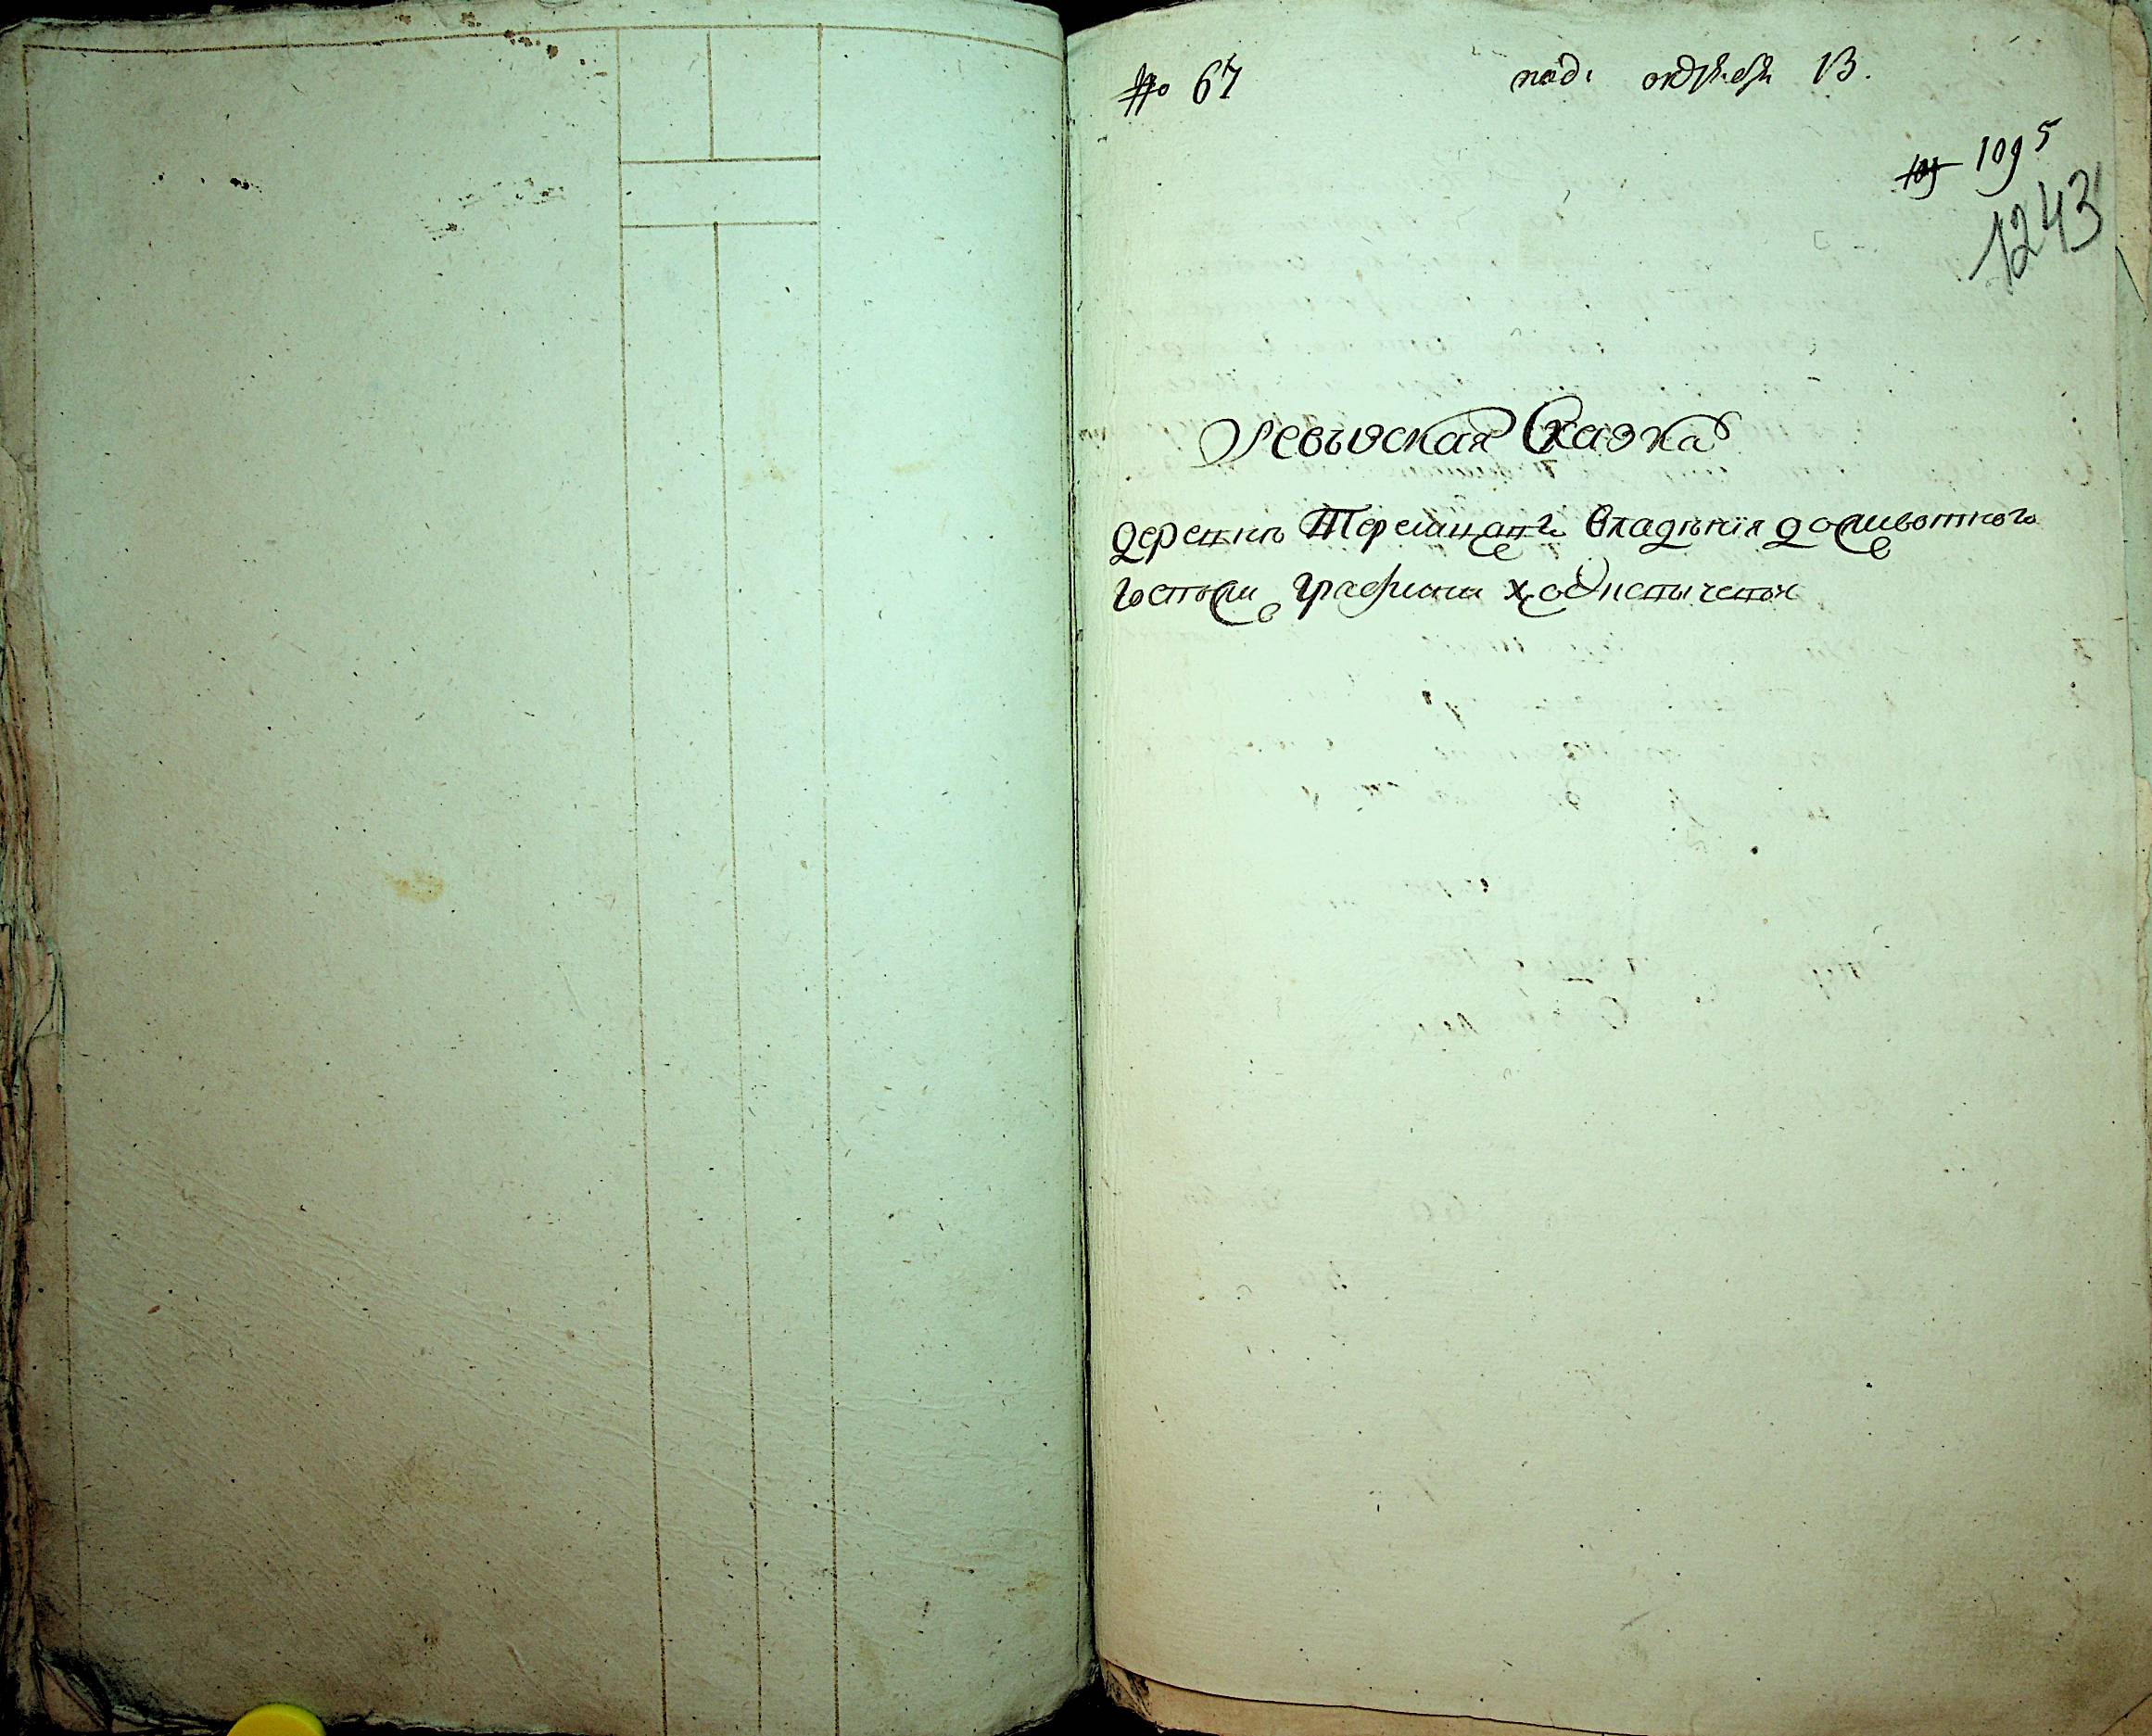 № 67 под. октября 13.
109 1095
1243
Ревизская Сказка
деревни Терешпаня Владѣнія доживотного
Госпожи Графини Ходкевичевой